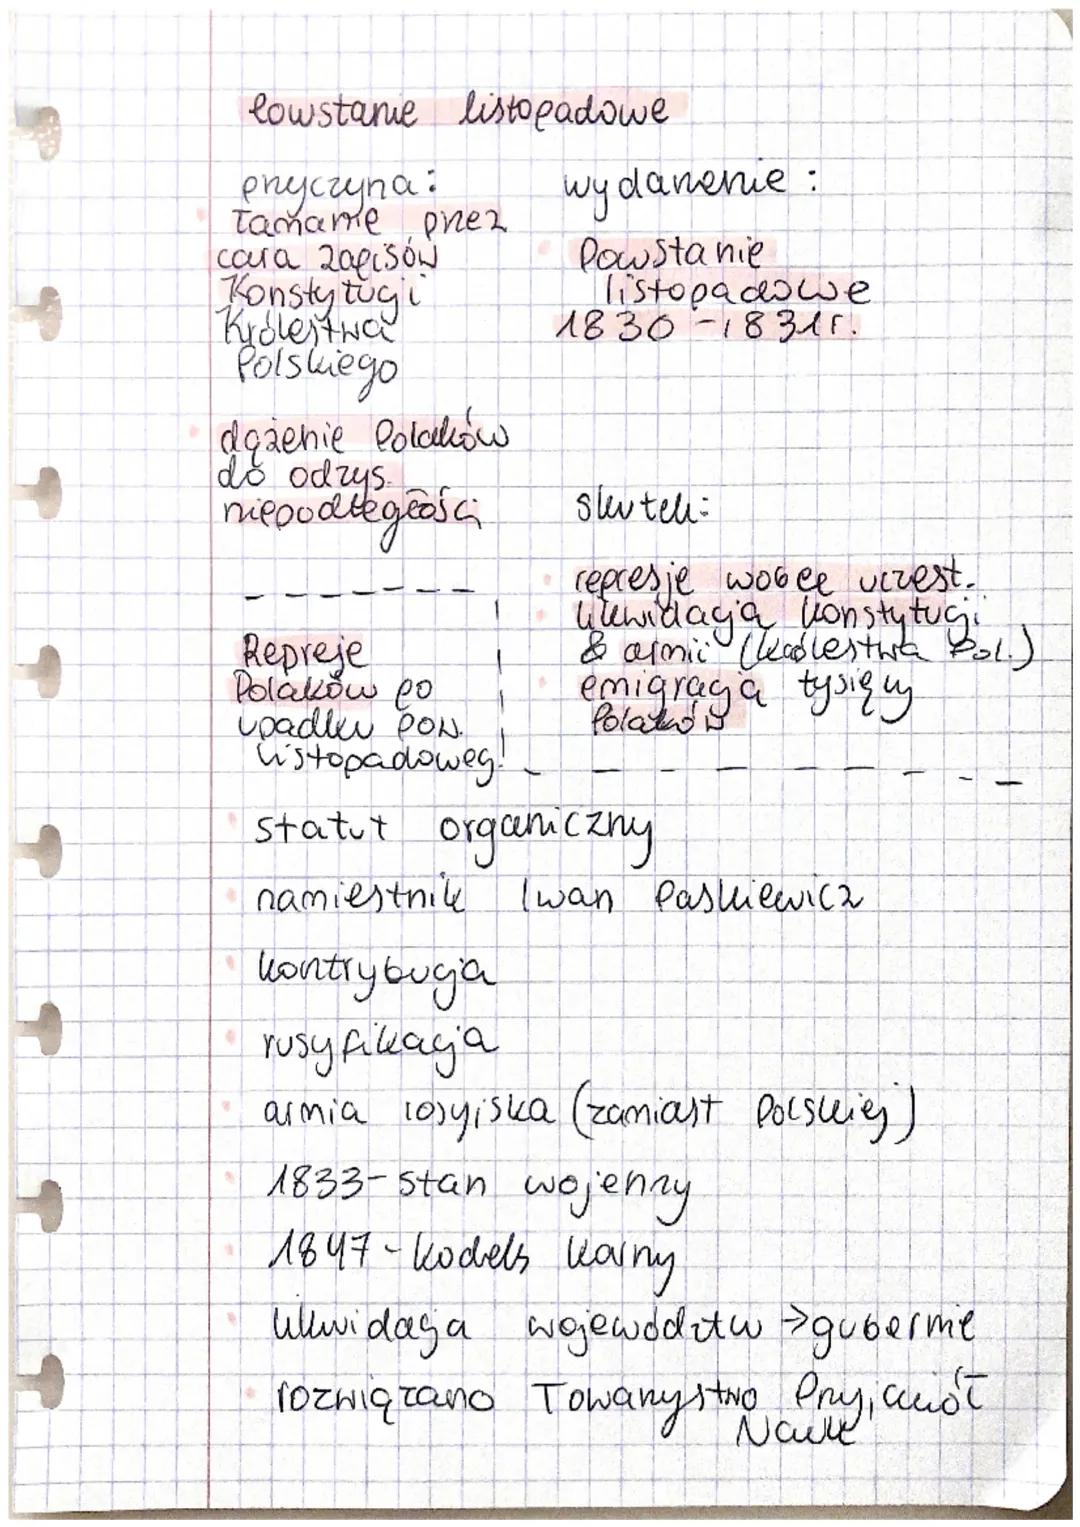 Powstanie listopadowe
przyczyna:
łamanie przez
cara zapisów
Konstytucji
Królestwa
Polskiego
dążenie Polaków
do odzys.
niepodległości
wydarzenie:
Powstanie
listopadowe
1830-1831r.
skutek:
represje wobec uczest.
likwidacja Konstytucji
& armii (Królestwa Pol.)
emigracja tysięcy
Polaków
Represje
Polaków po
upadku pow.
listopadoweg.
statut organiczny
namiestnik Iwan Paskiewicz
kontrybucja
rusyfikacja
armia rosyjska (zamiast Polskiej)
1833-stan wojenny
1847-kodeks karny
likwidacja województw → gubernie
rozwiązano Towarzystwo Przyjaciół
Nauk